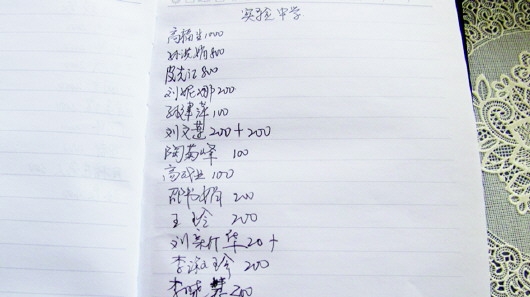 实验中学
高福生1000
孙洪娟800
皮先江800
刘妮娜200
津萍100
刘文 200+200
陶菊峰 100
高 业 100
邵书娟 200
王玲 200
刘 华20+
李淑珍 200
李晓 200